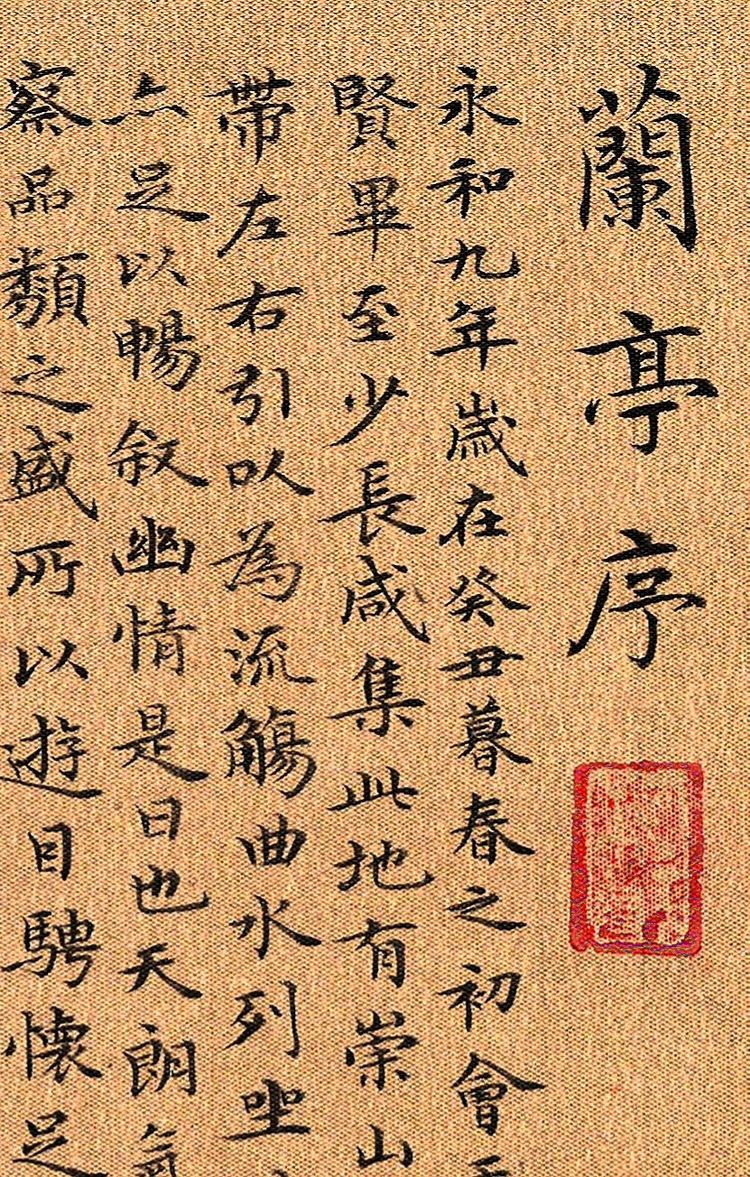 蘭亭序
永和九年歲在癸丑暮春之初會
賢畢至少長咸集此地有崇山
帶左右引以為流觴曲水列坐
亦足以暢叙幽情是日也天朗氣
察品類之盛所以遊目騁懷足